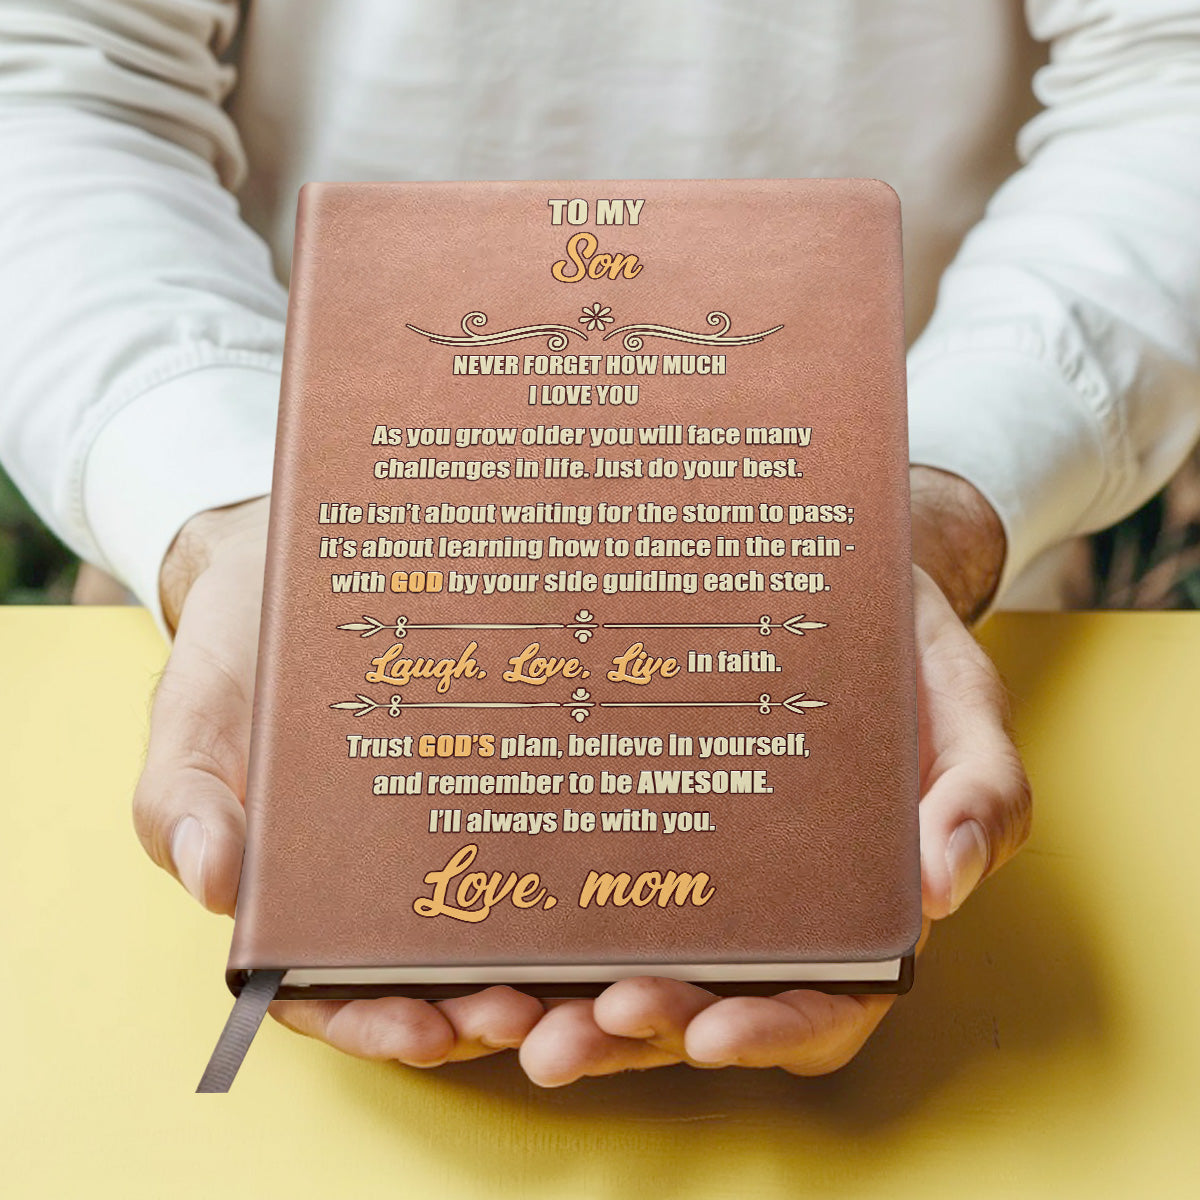 TO MY
Son
NEVER FORGET HOW MUCH
I LOVE YOU
As you grow older you will face many
challenges in life. Just do your best.
Life isn't about waiting for the storm to pass;
it's about learning how to dance in the rain -
with GOD by your side guiding each step.
Laugh, Love, Live in faith.
Trust GOD'S plan, believe in yourself,
and remember to be AWESOME.
I'll always be with you.
Love, mom